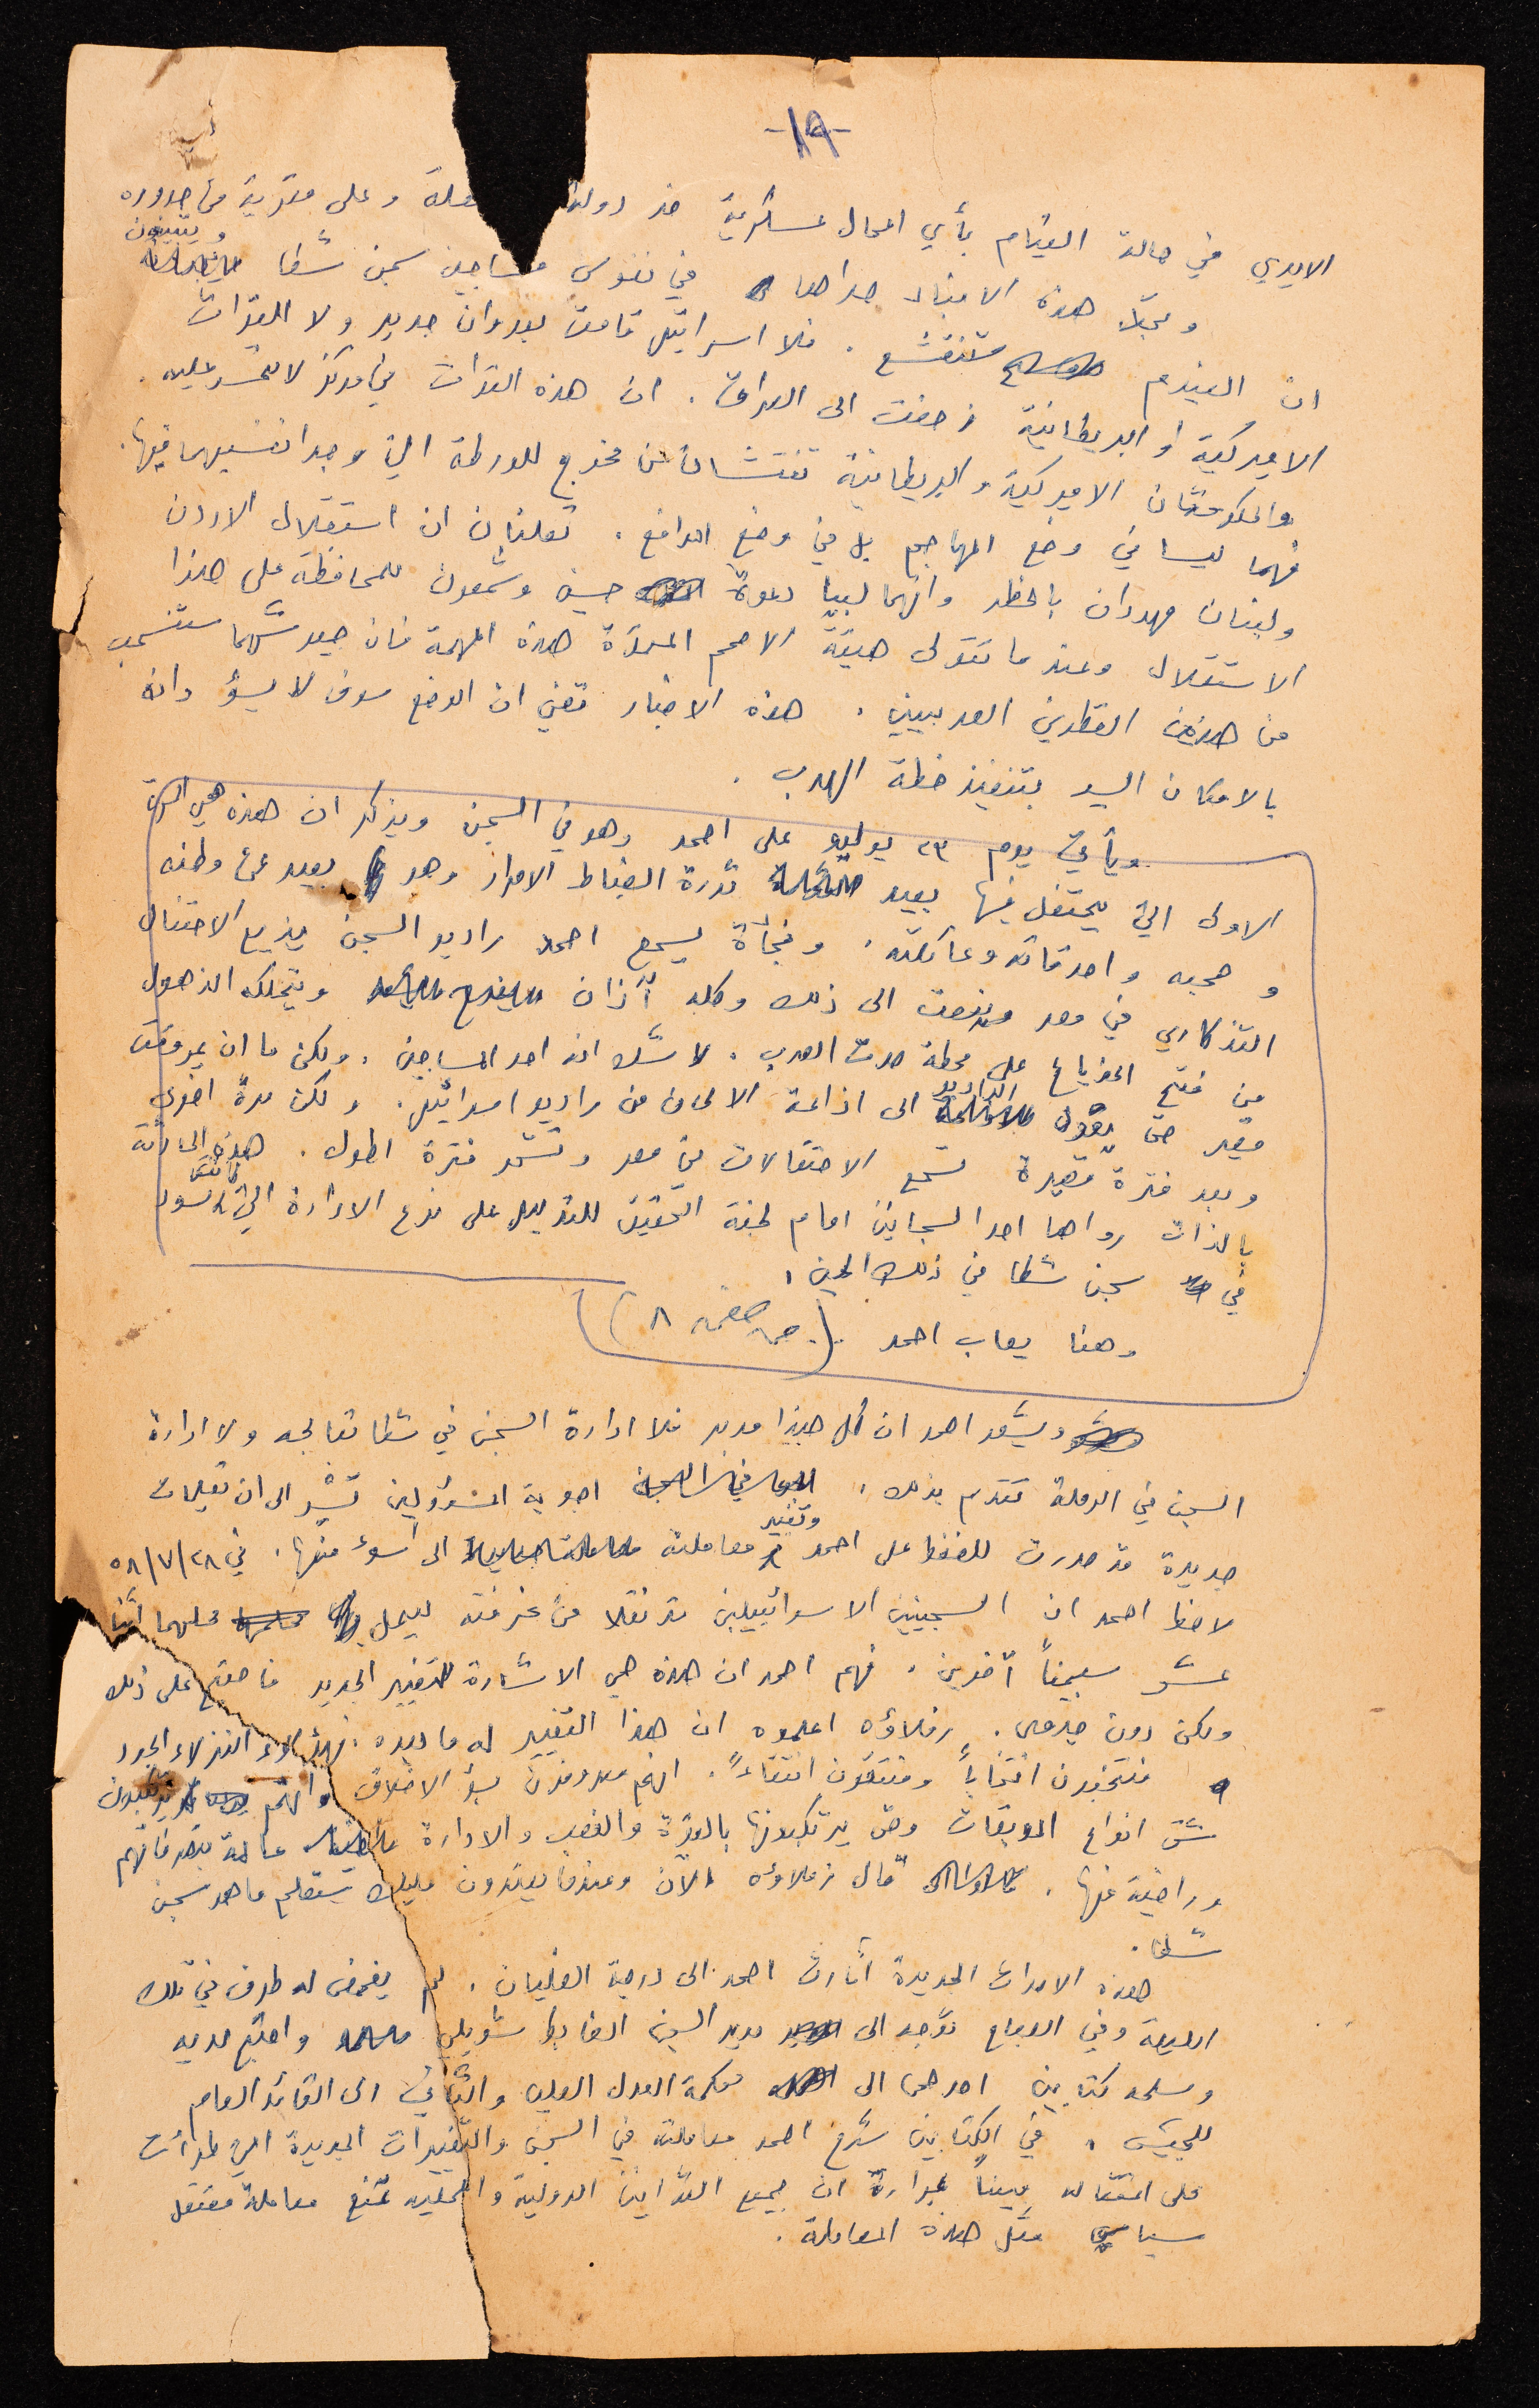 -١٩-
الايدي في حالة القيام بأي اعمال عسكرية ضد دولة وعلى مقربة من حدوده
وتجلا هذه الانباء صداها في نفوس مساجين سجن شطا ويتبينون
ان الغيوم ستنقشع . فلا اسرائيل قامت بعدوان جديد ولا القوات
الاميركية او البريطانية زحفت الى العراق . ان هذه القوات في مركز لا تحسد عليه .
والحكومتان الاميركية والبريطانية تفتشان عن مخرج للورطة التي وجدا نفسيهما فيها .
فهما ليسا في وضع المهاجم بل في وضع المدافع . تعلنان ان استقلال الاردن
ولبنان مهددان بالخطر وانهما لبيا دعوة حسين وشمعون للمحافظة على هذا
الاستقلال وعندما تتولى هيئة الامم المتحدة هذه المهمة فان جيوشهما ستنسحب
من هذين القطرين العربيين . هذه الاخبار تعني ان الوضع سوف لا يسؤ وانه
بالامكان السير بتنفيذ خطة الهرب .
ويأتي يوم ٢٣ يوليو على احمد وهو في السجن ويذكر ان هذه هي المرة
الاولى التي يحتفل فيها بعيد ثورة الضباط الاحرار وهو بعيد عن وطنه
وصحبه واصدقائه وعائلته . وفجأة يسمع احمد راديو السجن يذيع الاحتفال
التذكاري في مصر فينصت الى ذلك وكله آذان ويتملكه الذهول
من فتح المذياع على محطة صوت العرب . لا شك انه احد المساجين . ولكن ما ان يمر وقت
قصير حتى يتحول الراديو الى اذاعة الالحان من راديو اسرائيل . ولكن مرة اخرى
وبعد فترة قصيرة تسمع الاحتفالات في مصر وتستمر فترة اطول . هذه الحادثة
بالذات رواها احد السجانين امام لجنة التحقيق للتدليل على نوع الادارة التي كانت تسود
في سجن شطا في ذلك الحين .
وهنا يعاب احمد ( من صفحة ٨ )
ويشعر احمد ان كل هذا مدبر فلا ادارة السجن في شطا تعالجه ولا ادارة
السجن في الرملة تقوم بذلك . اجوبة المسؤولين تشير الى ان تعليمات
جديدة قد صدرت للضغط على احمد وتغيير معاملته الى أسوء منها . في ٢٨/٧/٥٨
لاحظ احمد ان السجينين الاسرائيليين قد نقلا من غرفته ليحل محلهما اثنا
عشر سجيناً آخرين . فهم احمد ان هذه هي الاشارة للتغيير الجديد فاحتج على ذلك
ولكن دون جدوى . زملاؤه اعلموه ان هذا التغيير له ما يبرره . فهؤلاء النزلاء الجدد
منتخبون انتخاباً ومنتقون انتقاءً . انهم معروفون بسؤ الاخلاق وانهم يرتكبون
شتى انواع الموبقات وحتى يرتكبونها بالقوة والغصب والادارة عالمة بتصرفاتهم
وراضية عنها . قال زملاؤه الآن وعندما يعتدون عليك ستعلم ما هو سجن
شطا .
هذه الاحداث الجديدة أثارت احمد الى درجة الغليان . لم يغمض له طرف في تلك
الليلة وفي الصباح توجه الى مدير السجن الضابط شويلي واحتج لديه
وسلمه كتابين احدهما الى محكمة العدل العليا والثاني الى القائد العام
للجيش . في الكتابين شرح احمد معاملته في السجن والتغييرات الجديدة التي طرأت
على اعتقاله مبيناً بمرارة ان جميع القوانين الدولية والمحلية تمنع معاملة معتقل
سياسي مثل هذه المعاملة .